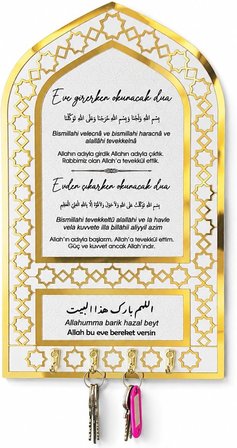 Eve girerken okunacak dua
بِسْمِ اللهِ وَلَجْنَا وَبِسْمِ اللهِ خَرَجْنَا وَعَلَى اللهِ تَوَكَّلْنَا
Bismillahi velecnâ ve bismillahi haracnâ ve
alallâhi tevekkelnâ
Allahın adıyla girdik Allahın adıyla çıktık.
Rabbimiz olan Allah'a tevekkül ettik.
Evden çıkarken okunacak dua
بِسْمِ اللهِ تَوَكَّلْتُ عَلَى اللهِ وَلَا حَوْلَ وَلَا قُوَّةَ إِلَّا بِاللهِ الْعَلِيِّ الْعَظِيمِ
Bismillahi tevekkeltü alallahi ve la havle
vela kuvvete illa billâhil aliyyil azim
Allah'ın adıyla başlarım. Allah'a tevekkül ettim.
Güç ve kuvvet ancak Allah'ındır.
اللهم بارك هذا البيت
Allahumma barik hazal beyt
Allah bu eve bereket versin